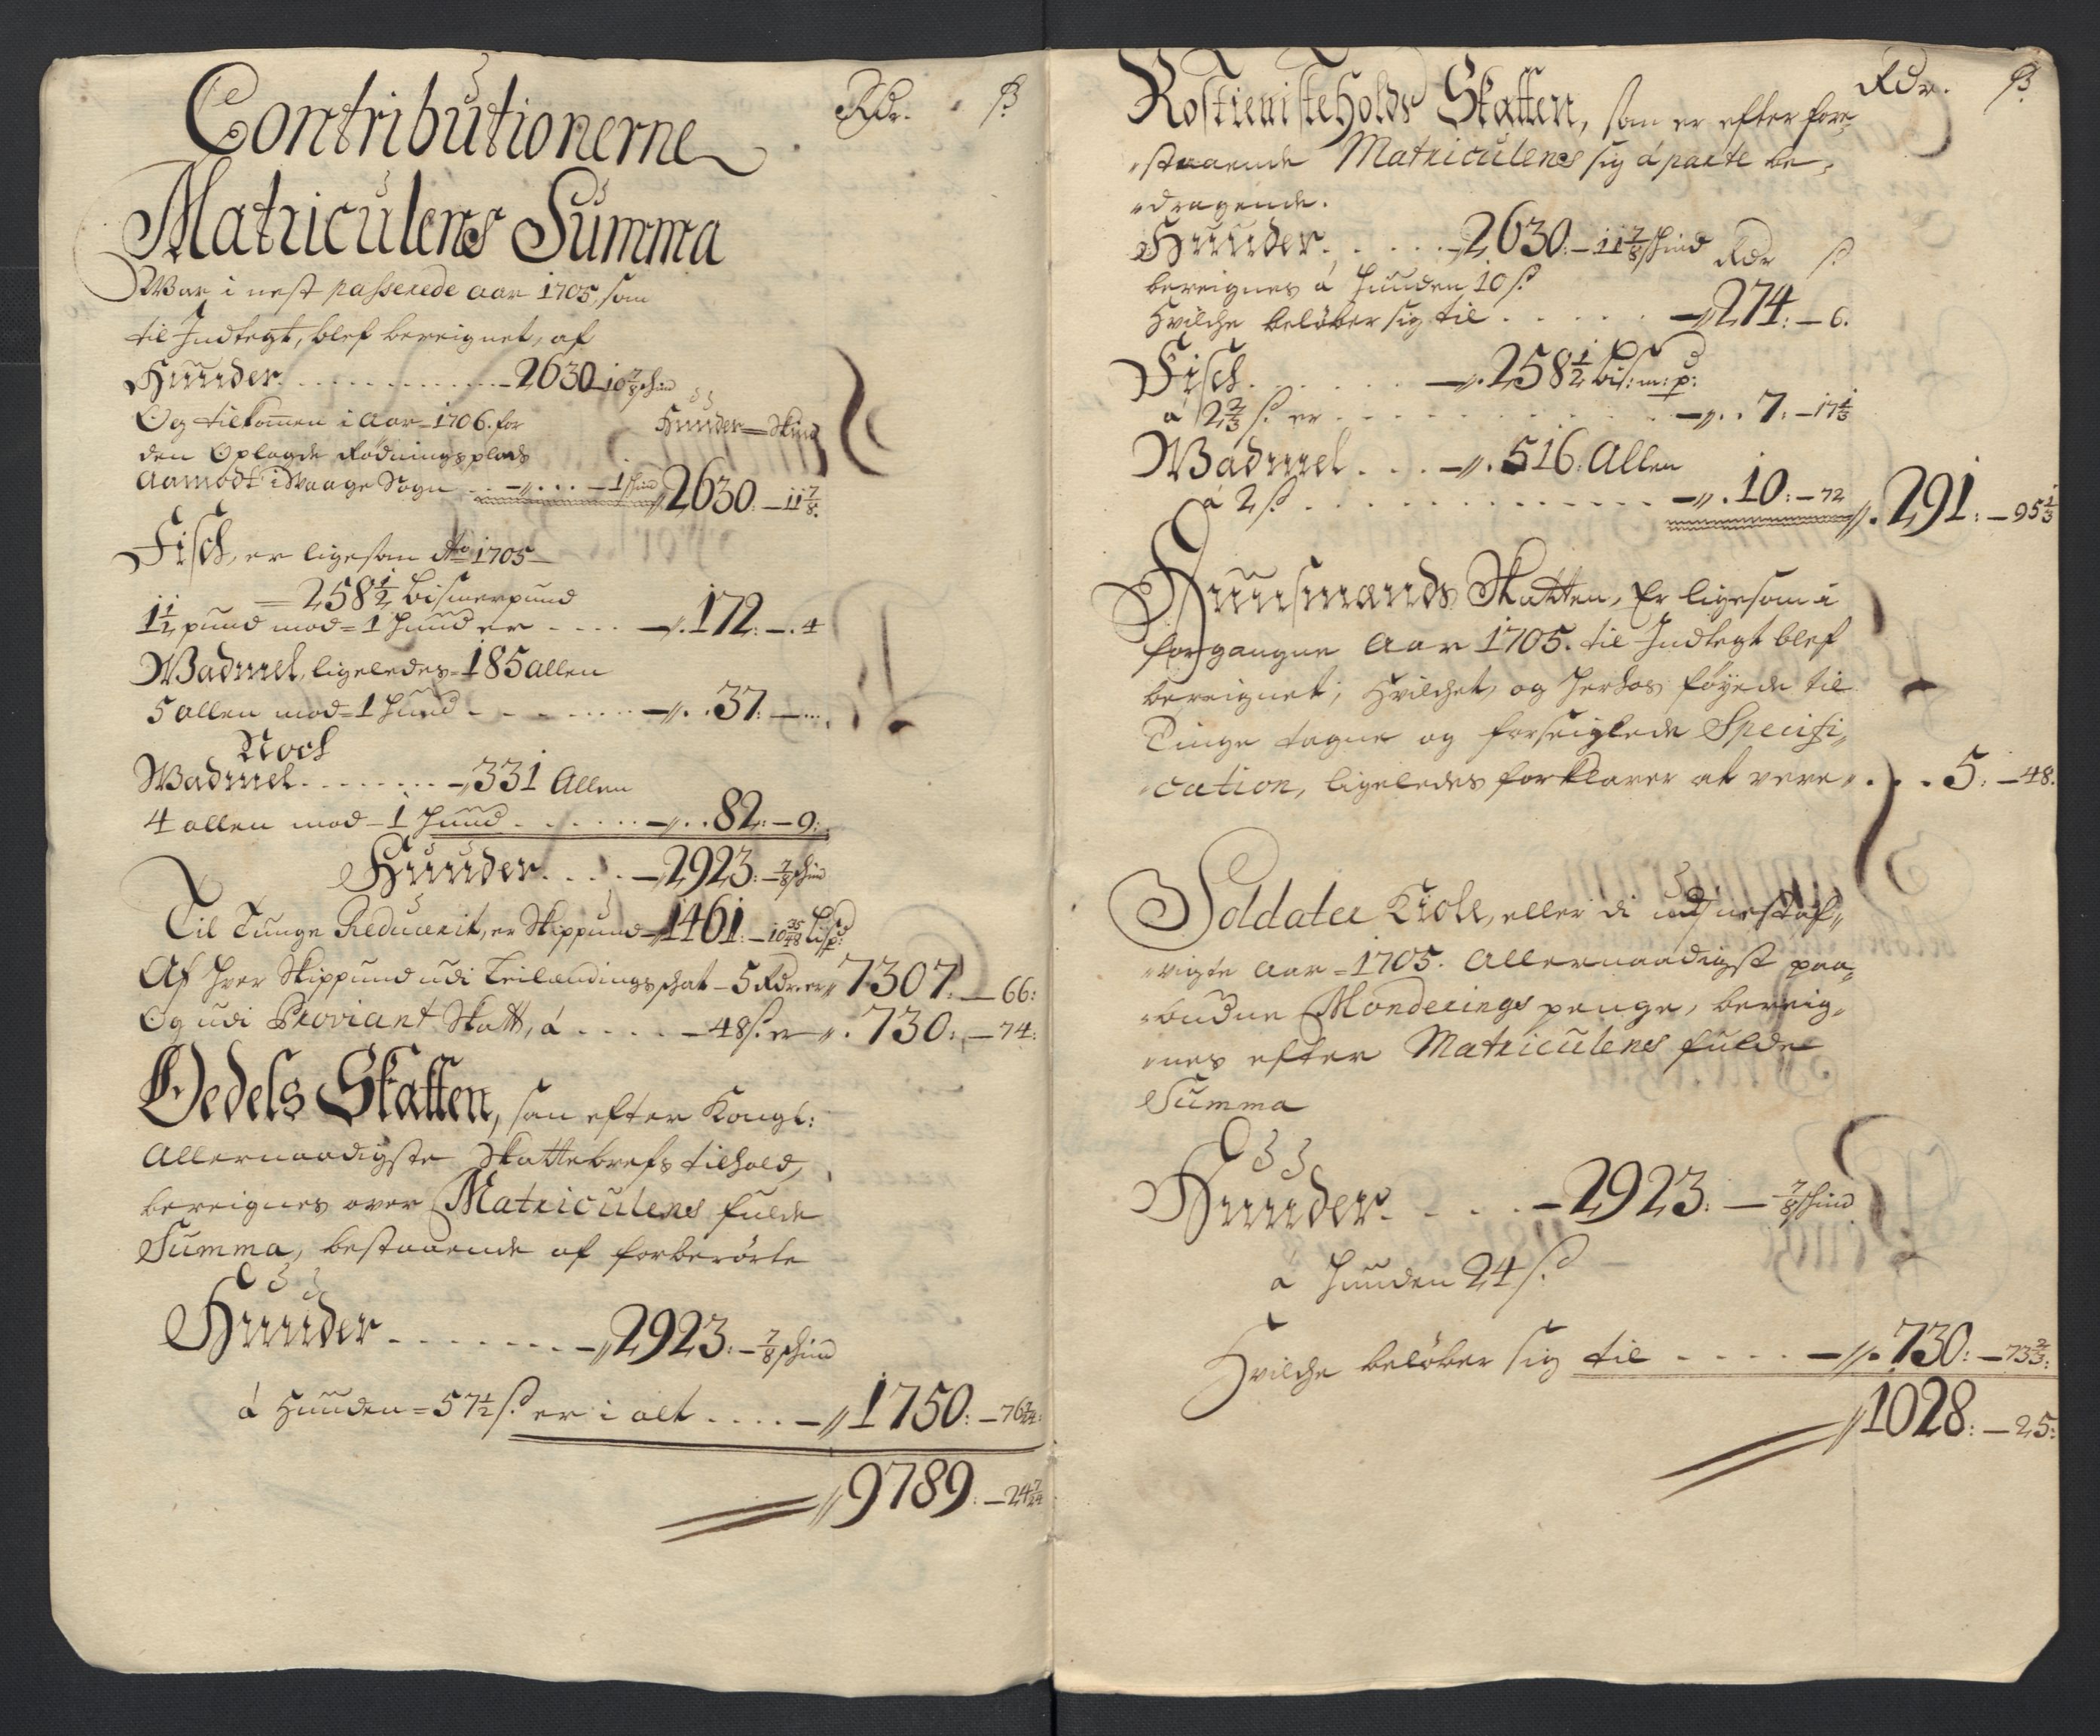 Contributionerne
Rdr. ß
Matriculens Summa
War i nest passerede aar 1705, som
til Indtegt, blef bereignet, af
Huuder . . . . . . . . . . . 2630 - 10 7/8 skind
Og tilkomen i Aar 1706. for
Huuder - Skind
den Oplagde Rødningsplads
Aamodt i Waage Sogn . . . . 1 skind 2630: - 11 7/8.
Fisch, er ligesom Ao 1705
= 258 1/2 bismerpund
1 1/2 pund mod = 1 huud er . . . . 172: - 4
Wadmel, ligeledes = 185 allen
5 allen mod = 1 huud . . . . . . . 37: - . . .
Noch
Wadmel . . . . . . . . 331 Allen
4 allen mod - 1 huud . . . . . . . 82: - 9:
Huuder . . . . 2923: - 7/8 skind
Til Tunge Reducerit, er Skippund 1461: - 10 35/48 Lispd:
Af hver Skippund udi Leilændings schat - 5 Rdr. er 7307: - 66:
Og udi Proviant Skatt, á . . . . . 48 ß. er 730: - 74:
Oedels Skatten, som efter Kongl:
Allernaadigste Skattebrefs tilhold,
bereignes over Matriculens fulde
Summa, bestaaende af forberørte
Huuder . . . . . . . 2923: - 7/8 skind
á Huuden = 57 1/2 ß. er i alt . . . . 1750: - 76 7/24:
9789: - 24 7/24
Rostienisteholds Skatten, som er efter fore-
Rdr. ß
staaende Matriculens sig á parte be-
dragende.
Huuder . . . . . 2630: - 11 7/8 skind Rdr ß
bereignes á huuden 10 ß.
Hvilche beløber sig til . . . . . 274: - 6.
Fisch . . . . . . . 258 1/2 bis:m:pd:
á 2 2/3 ß. er . . . . . . . . . . 7: - 17 1/3
Wadmel . . . . 516: Allen
á 2 ß . . . . . . . . . . . . . 10: - 72 291: - 95 1/3
Huusmands Skatten, Er ligesom i
forgangne Aar 1705. til Indtegt blef
bereignet; Hvilchet, og herhos føyede til
Tinge tagne og forseiglede Specifi-
cation, ligeledes forklarer at vere . . . 5: - 48.
Soldater Kiole, eller di udj nestaf-
vigte Aar = 1705. Allernaadigst paa-
budne Monderings penge, bereig-
nes efter Matriculens fulde
Summa
Huuder . . . . . 2923: - 7/8 skind
á huuden 24 ß.
Hvilche beløber sig til . . . . 730: - 73 2/3:
1028: - 25: